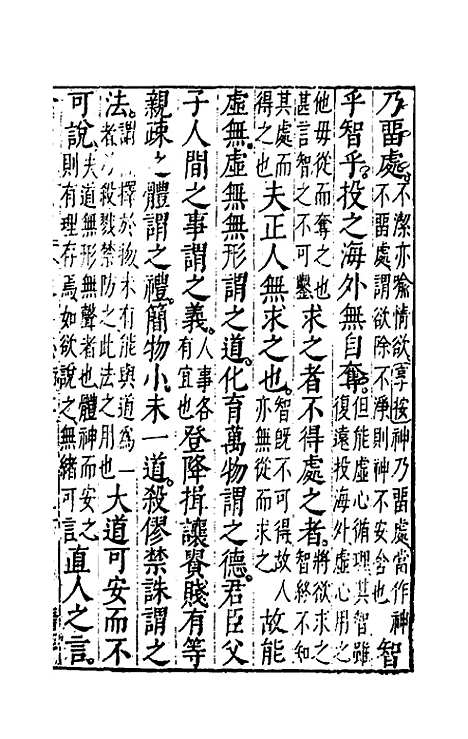 乃畱處不潔亦喻情欲享按神乃畱處當作神不畱處謂欲除不淨則神不安舍也智
乎智乎投之海外無自奪但能虛心循理其智雖復遠投海外虛心用之
他毋從而奪之也甚言智之不可鑿求之者不得處之者將欲求之智終不知
其處而得之也夫正人無求之也智旣不可得故人亦無從而求之故能
虛無虛無無形謂之道化育萬物謂之德君臣父
子人間之事謂之義人事各有宜也登降揖讓貴賤有等
親疎之體謂之禮簡物小未一道殺僇禁誅謂之
法謂擇於物未有能與道爲一者殺戮禁防之此法之用也大道可安而不
可說夫道無形無聲者也體神而安之則有理存焉如欲說之無緒可言直人之言